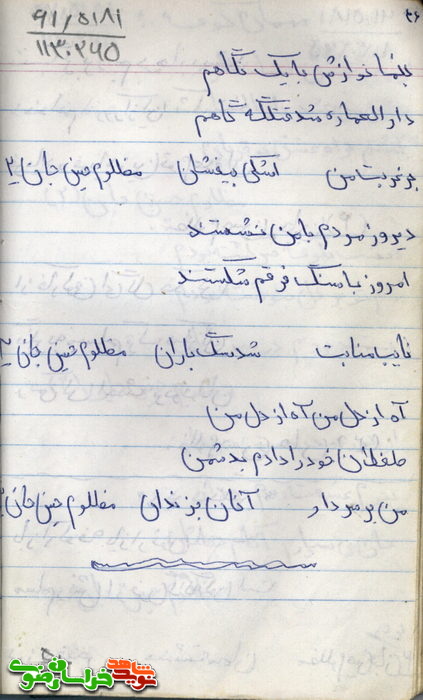 ۳۶
۹۱/۵۱۸۱
۱۱۳۰۲۶۵
بنما نوازش با یک نگاهم
دارالعماره شد قتلگاهم
بر غربت من اشکی بیفشان مظلوم حسین جان ۲
دیروز مردم با من نشستند
امروز با سنگ فرقم شکستند
نایب منابت شد سنگ باران مظلوم حسین جان ۲
آه از دل من آه از دل من
طفلان خود را دادم به دشمن
من بر سر دار آنان به زندان مظلوم حسین جان ۲
نوید شاهد خراسان رضوی